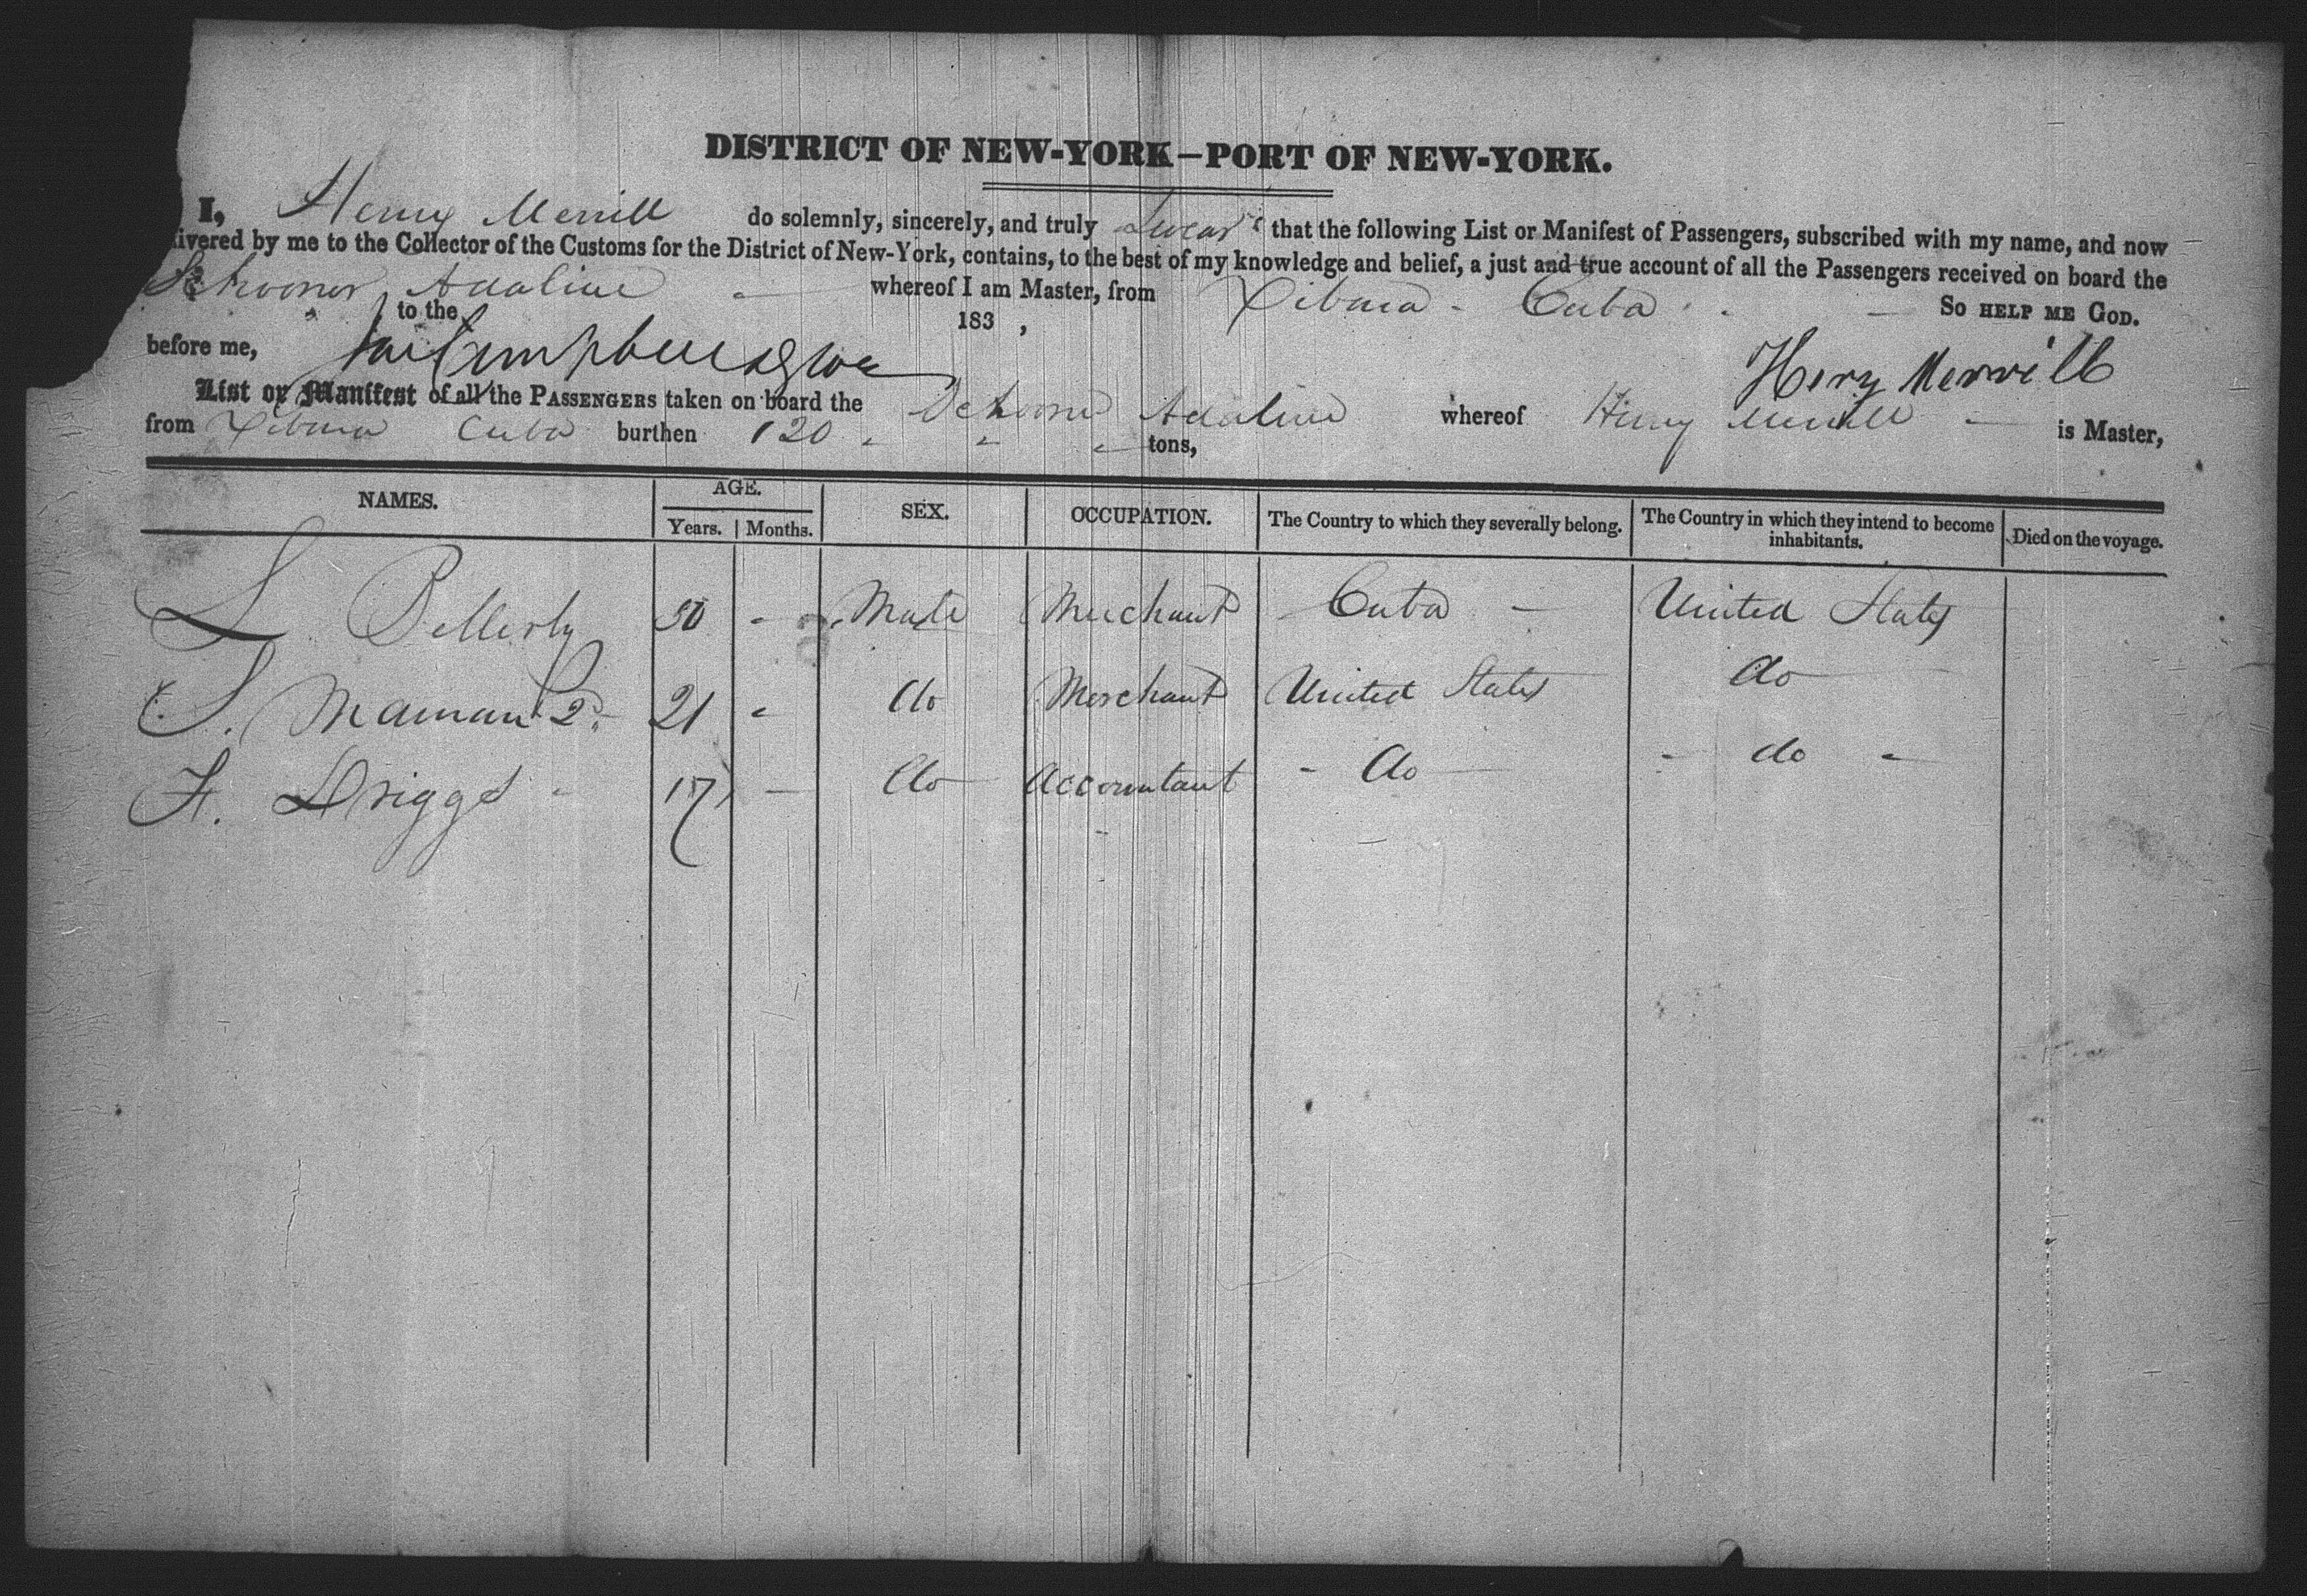 DISTRICT OF NEW-YORK—PORT OF NEW-YORK.
I, Henry Merrill do solemnly, sincerely, and truly Swear that the following List or Manifest of Passengers, subscribed with my name, and now
livered by me to the Collector of the Customs for the District of New-York, contains, to the best of my knowledge and belief, a just and true account of all the Passengers received on board the
Schooner Adaline whereof I am Master, from Xibara - Cuba
to the 183 , So HELP ME GOD.
before me, Henry Merrill
List or Manifest of all the PASSENGERS taken on board the Schooner Adaline whereof Henry Merrill is Master,
from Xibara Cuba burthen 120 tons,
NAMES. AGE. SEX. OCCUPATION. The Country to which they severally belong. The Country in which they intend to become inhabitants. Died on the voyage.
Years. Months.
L. 30 - Male Merchant Cuba - United States
S. 21 - do Merchant United States do
F. Driggs - 17 - do Accountant - do - do -